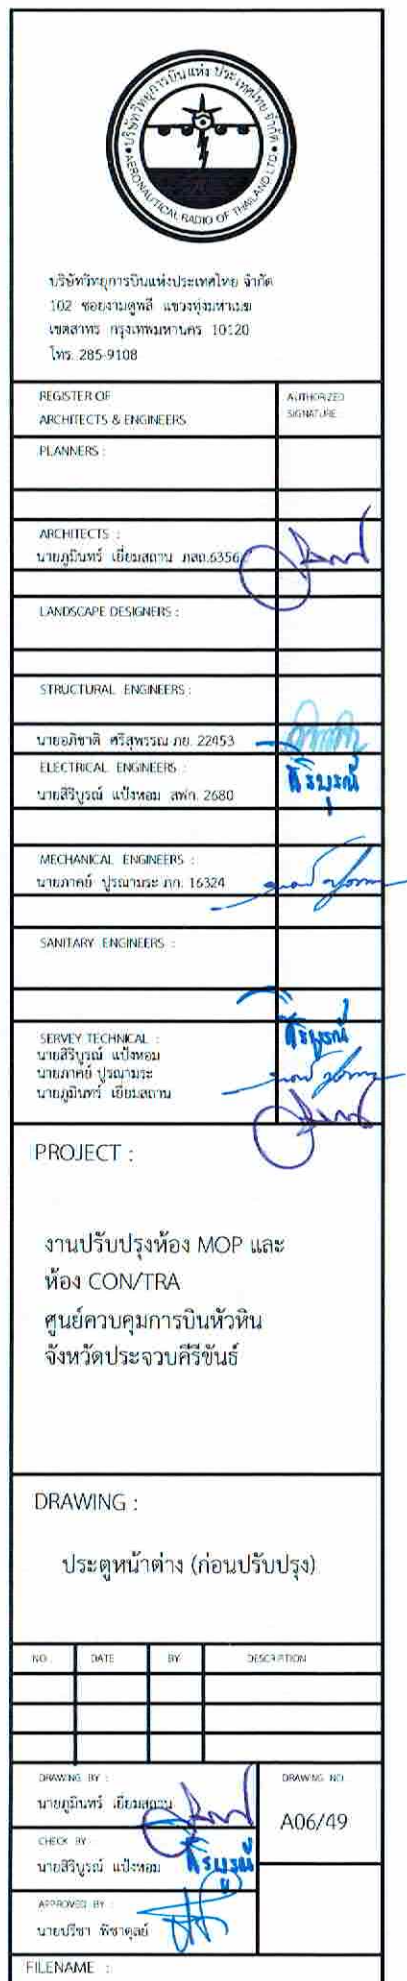 บริษัทวิทยุการบินแห่ง ประเทศไทย จำกัด
AERONAUTICAL RADIO OF THAILAND LTD.
บริษัทวิทยุการบินแห่งประเทศไทย จำกัด
102 ซอยงามดูพลี แขวงทุ่งมหาเมฆ
เขตสาทร กรุงเทพมหานคร 10120
โทร. 285-9108
REGISTER OF
ARCHITECTS & ENGINEERS
AUTHORIZED
SIGNATURE
PLANNERS :
ARCHITECTS :
นายภูมินทร์ เอี่ยมสถาน ภสถ.6356
LANDSCAPE DESIGNERS :
STRUCTURAL ENGINEERS :
นายอภิชาติ ศรีสุพรรณ ภย. 22453
ELECTRICAL ENGINEERS :
นายสิริบูรณ์ แป้งหอม สฟก. 2680
สิริบูรณ์
MECHANICAL ENGINEERS :
นายภาคย์ ปูรณามระ ภก. 16324
SANITARY ENGINEERS :
SERVEY TECHNICAL :
นายสิริบูรณ์ แป้งหอม
สิริบูรณ์
นายภาคย์ ปูรณามระ
นายภูมินทร์ เอี่ยมสถาน
PROJECT :
งานปรับปรุงห้อง MOP และ
ห้อง CON/TRA
ศูนย์ควบคุมการบินหัวหิน
จังหวัดประจวบคีรีขันธ์
DRAWING :
ประตูหน้าต่าง (ก่อนปรับปรุง)
NO. DATE BY DESCRIPTION
DRAWING BY :
นายภูมินทร์ เอี่ยมสถาน
DRAWING NO.
A06/49
CHECK BY :
นายสิริบูรณ์ แป้งหอม
สิริบูรณ์
APPROVED BY :
นายปรีชา พิชาดุลย์
FILENAME :